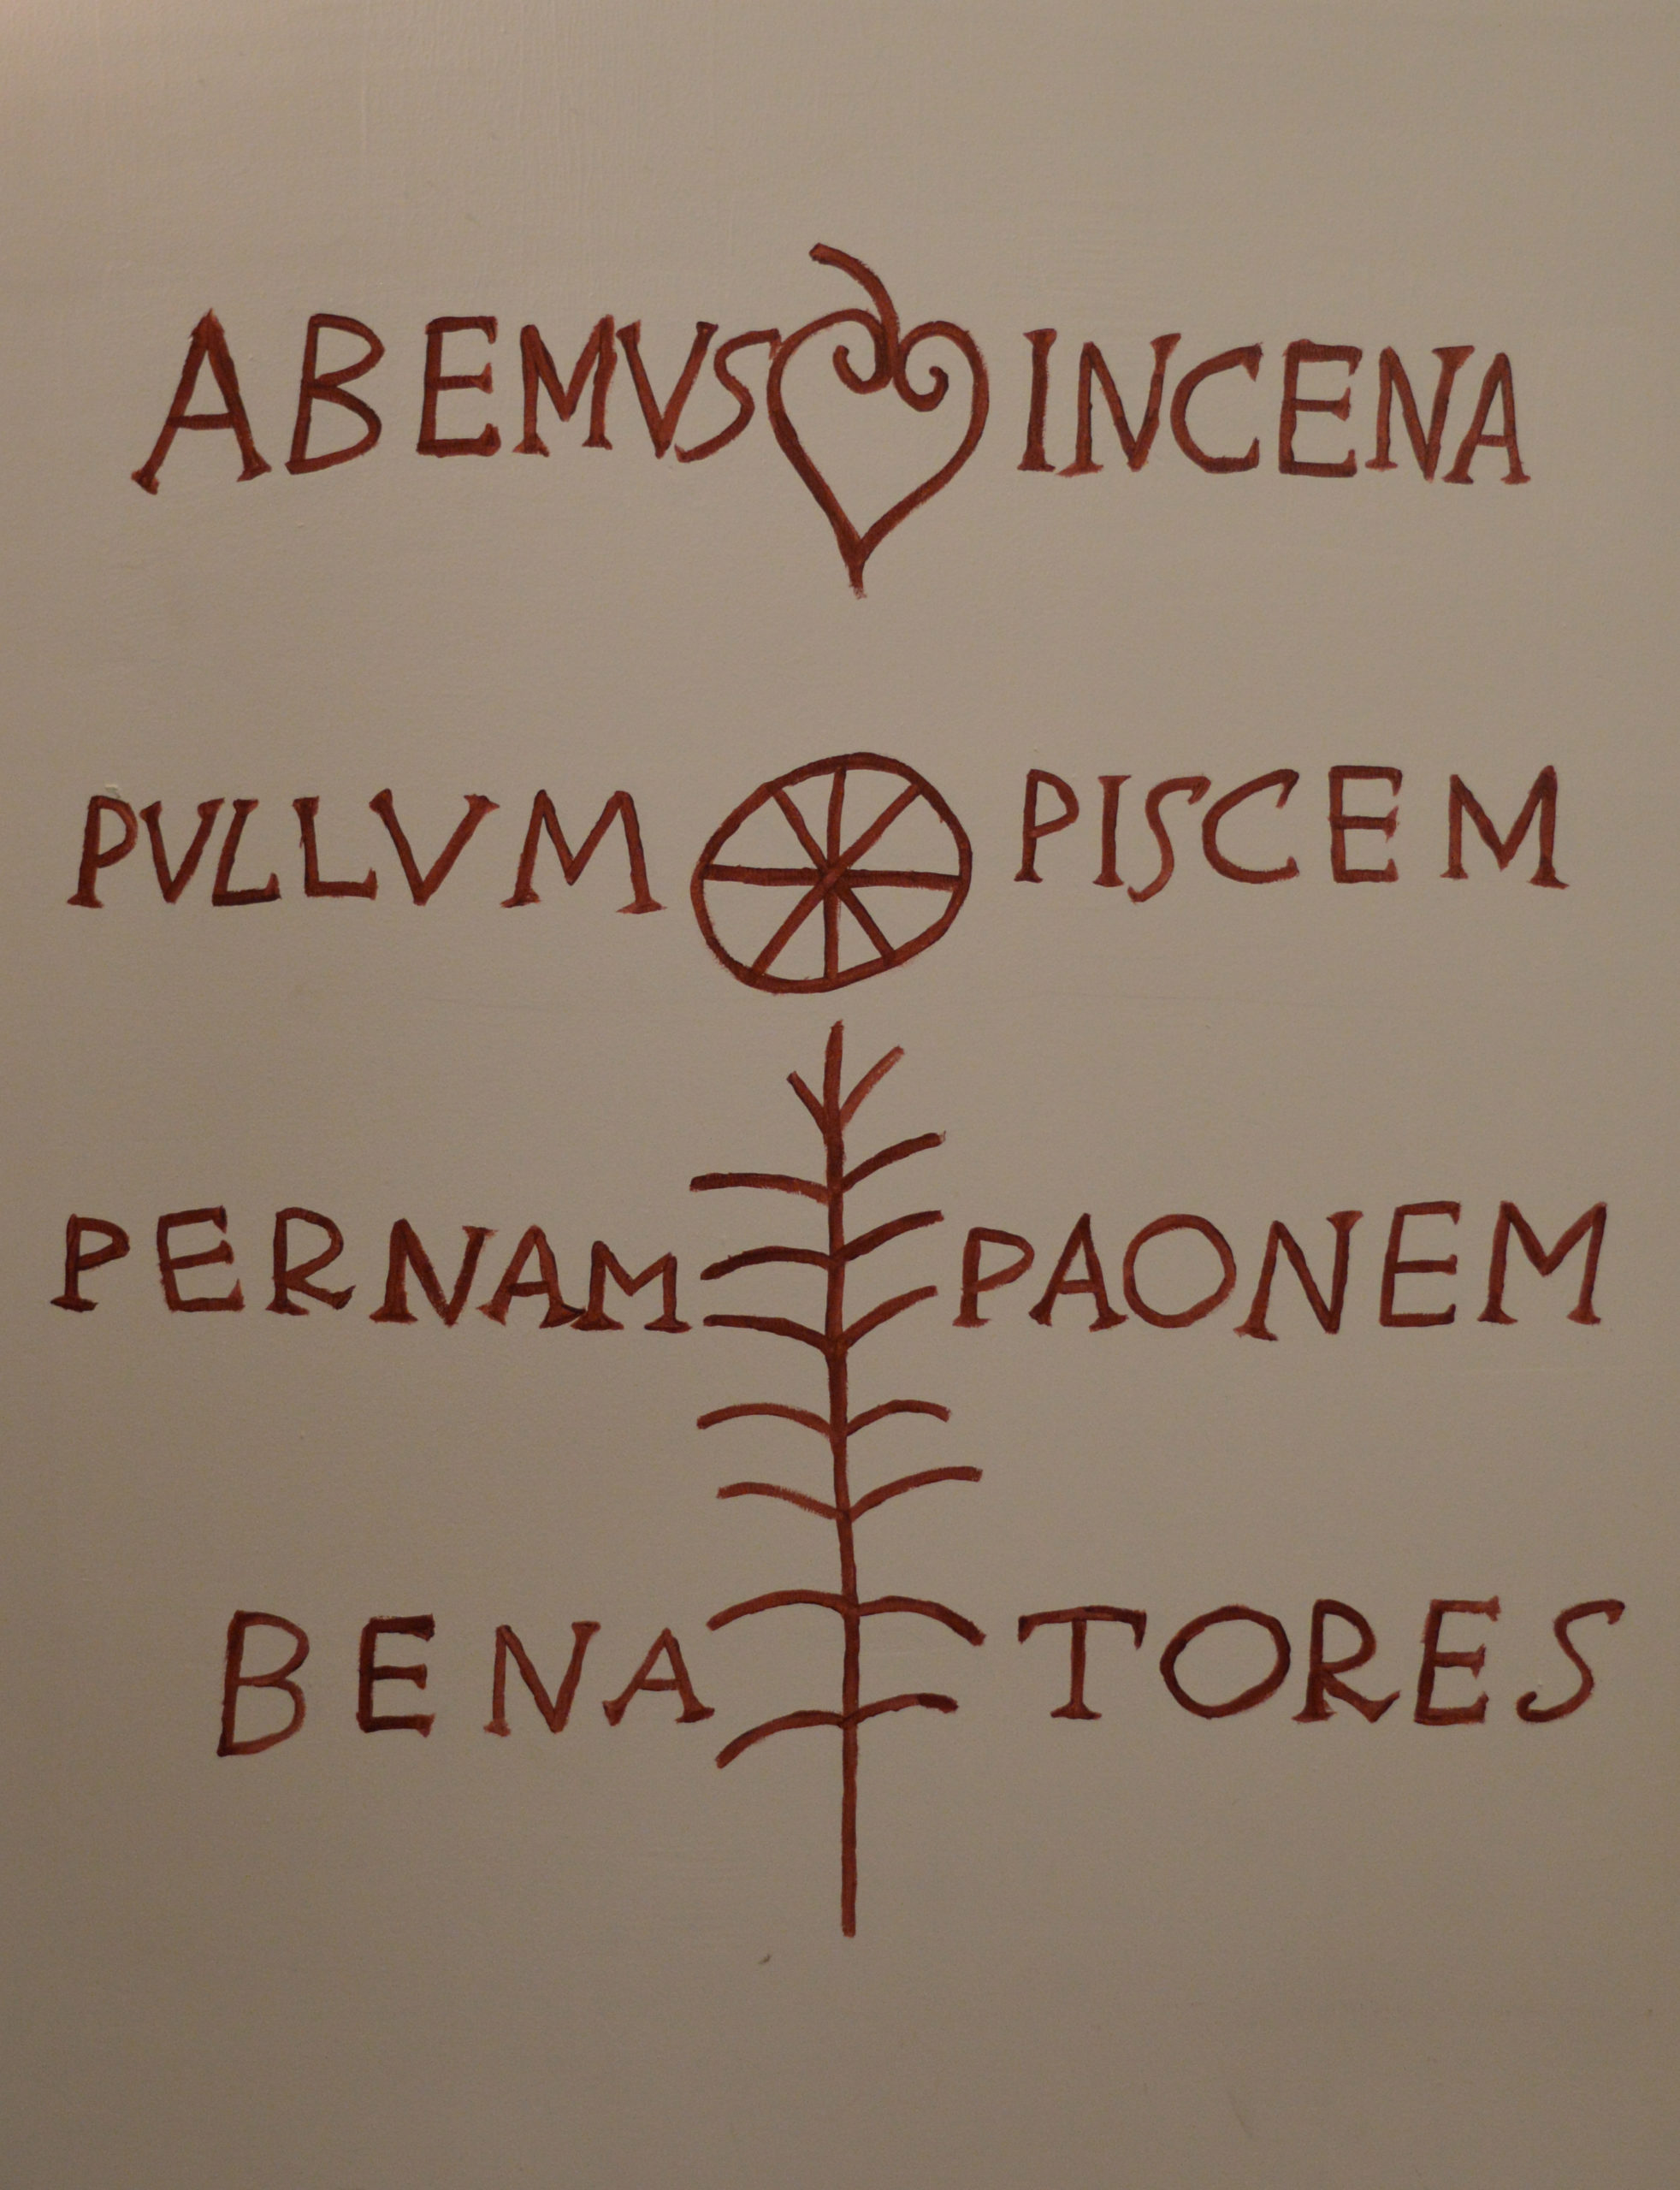 ABEMVS INCENA
PVLLVM PISCEM
PERNAM PAONEM
BENA TORES